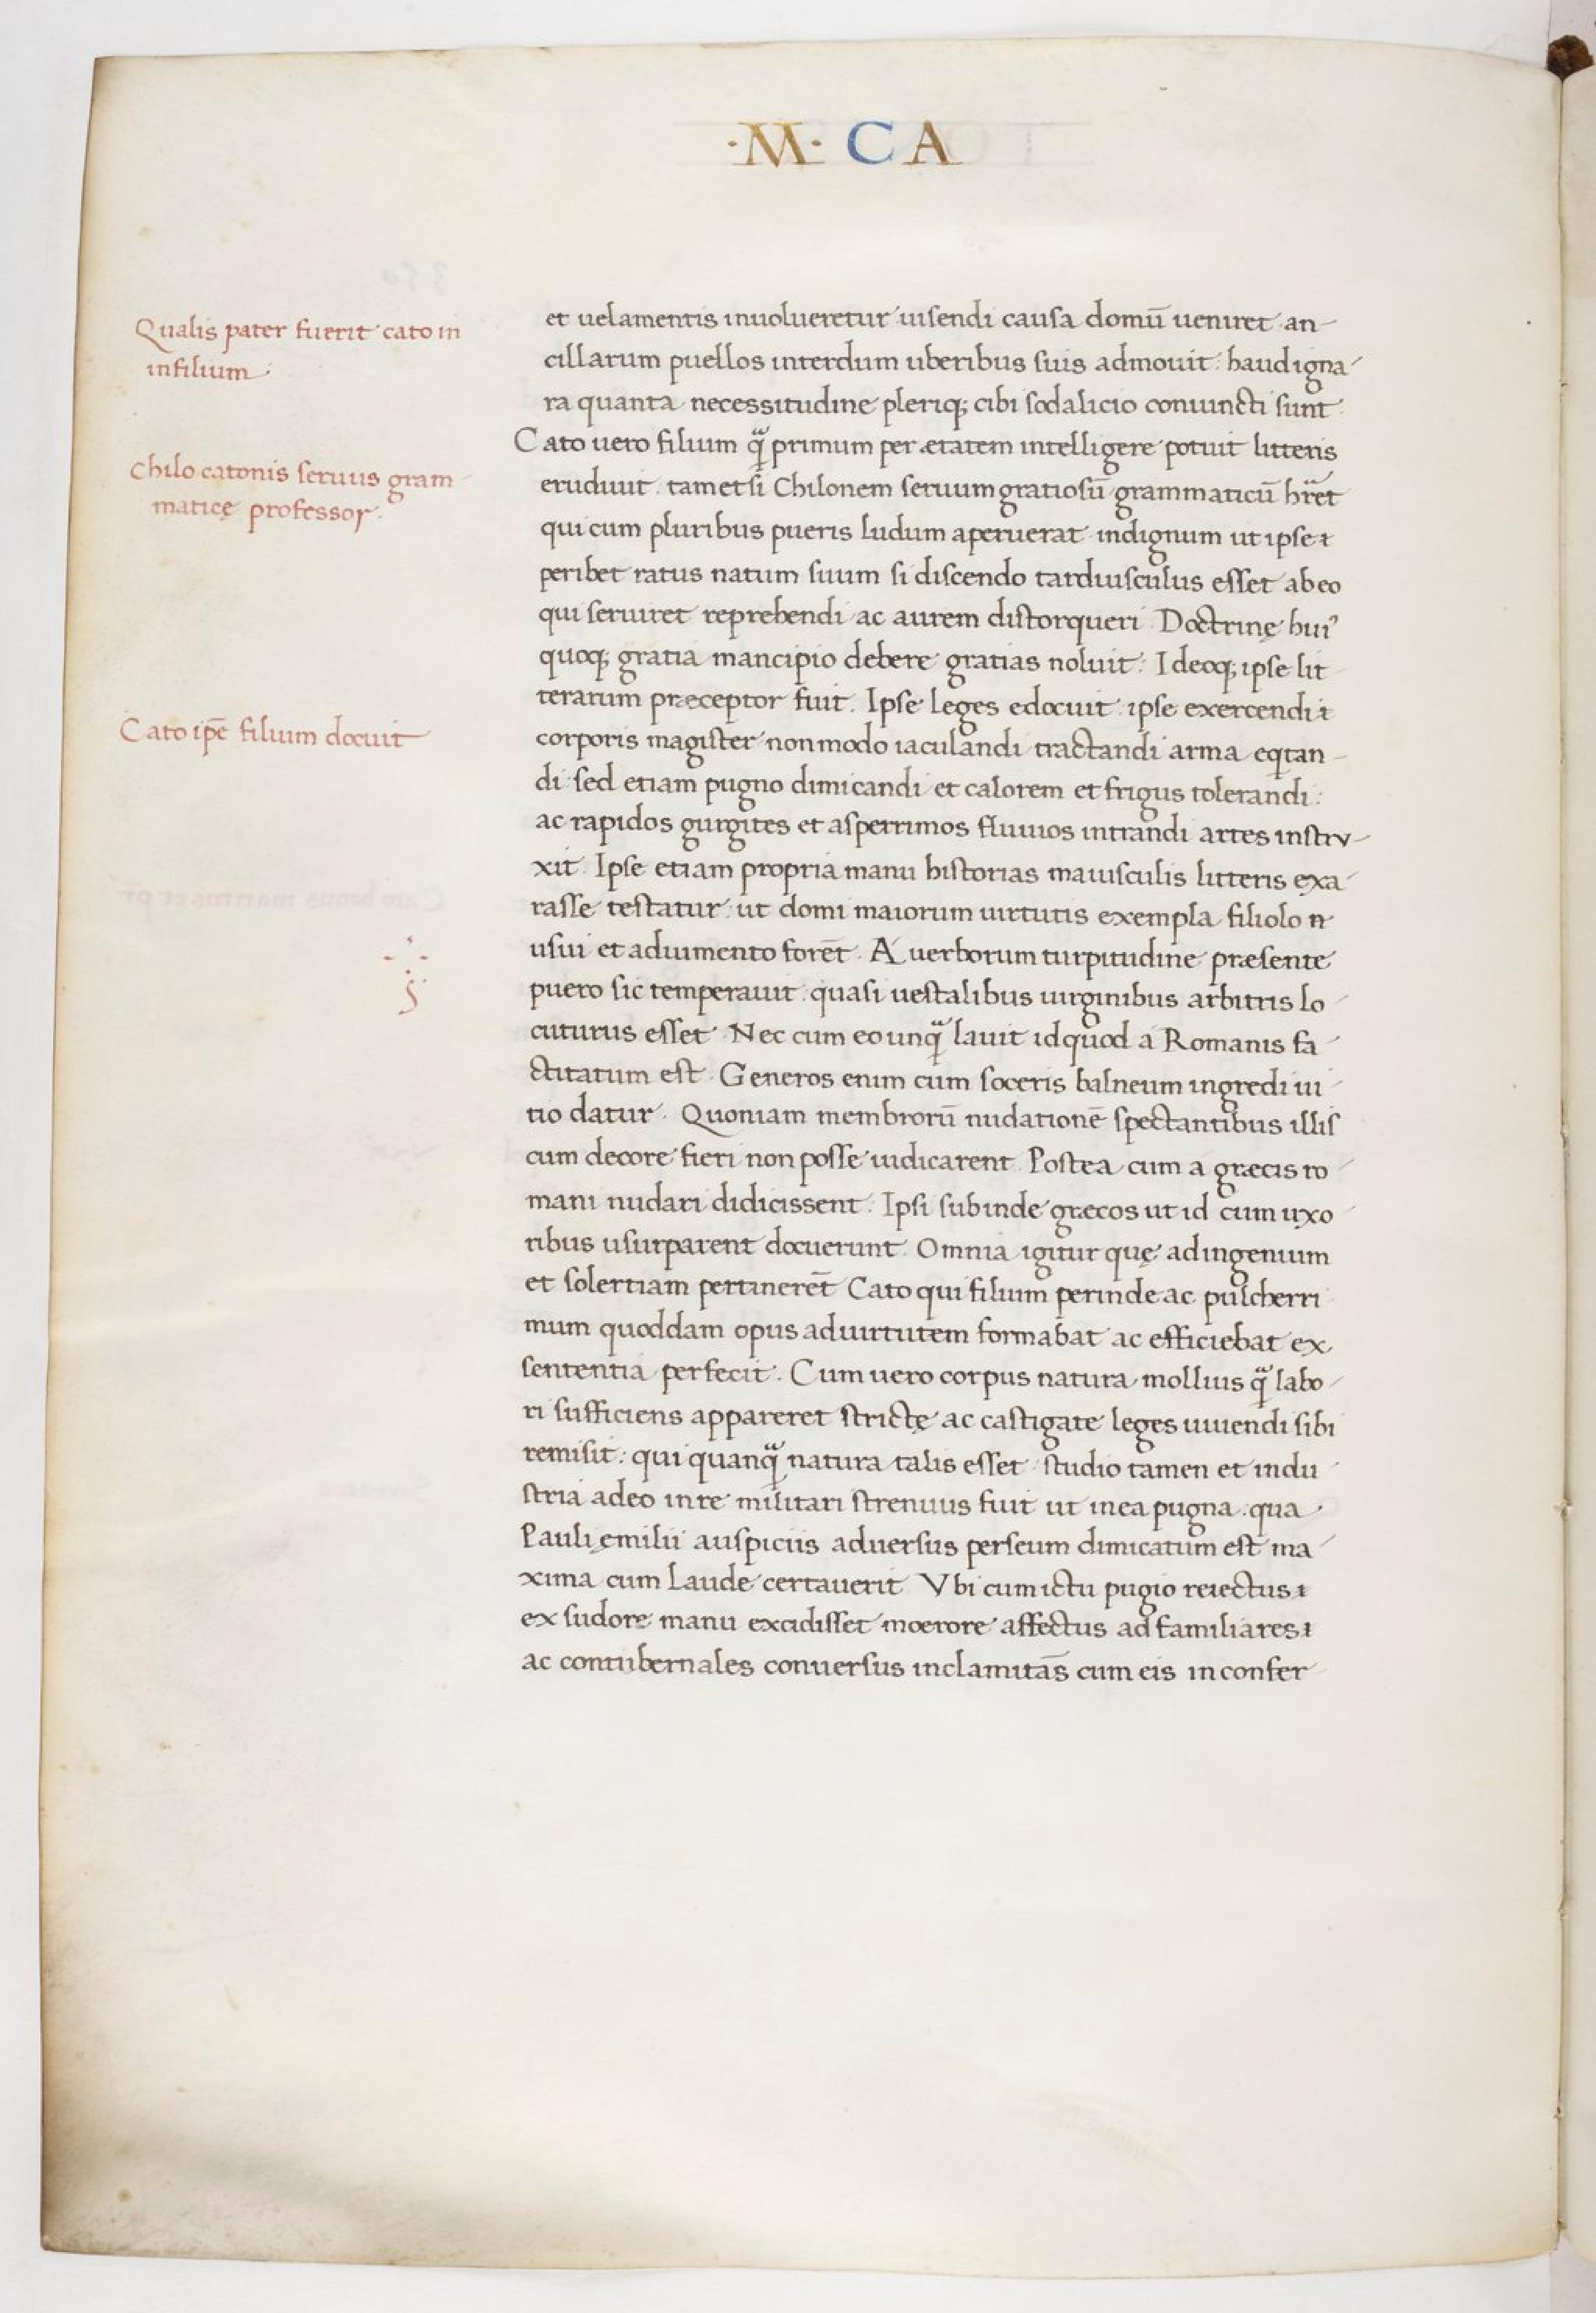 ·M· C A
Qualis pater fuerit cato in
infilium
Chilo catonis seruus gram
maticę professor
Cato ipē filium docuit
et uelamentis inuolueretur uisendi causa domū ueniret an-
cillarum puellos interdum uberibus suis admouit: haud igna-
ra quanta necessitudine pleriq; cibi sodalicio coniuncti sunt.
Cato uero filium q̄ primum per ætatem intelligere potuit litteris
erudiuit. tametsi Chilonem seruum gratiosū grammaticū hr̄et
qui cum pluribus pueris ludum aperuerat. indignum ut ipse
peribet ratus natum suum si discendo tardiusculus esset ab eo
qui seruiret reprehendi ac aurem distorqueri. Doctrinę hui⁹
quoq; gratia mancipio debere gratias noluit: Ideoq; ipse lit
terarum præceptor fuit. Ipse leges edocuit: ipse exercendi
corporis magister non modo iaculandi tractandi arma eqtan-
di sed etiam pugno dimicandi et calorem et frigus tolerandi:
ac rapidos gurgites et asperrimos fluuios intrandi artes instru-
xit. Ipse etiam propria manu historias maiusculis litteris exa-
rasse testatur: ut domi maiorum uirtutis exempla filiolo
usui et adiumento forēt. A uerborum turpitudine præsente
puero sic temperauit: quasi uestalibus uirginibus arbitris lo-
cuturus esset. Nec cum eo unq̄ lauit id quod a Romanis fa-
ctitatum est. Generos enim cum soceris balneum ingredi ui-
tio datur. Quoniam membrorū nudationē spectantibus illis
cum decore fieri non posse iudicarent. Postea cum a græcis ro-
mani nudari didicissent. Ipsi subinde græcos ut id cum uxo-
ribus usurparent docuerunt. Omnia igitur quę ad ingenium
et solertiam pertinerēt Cato qui filium perinde ac pulcherri
mum quoddam opus ad uirtutem formabat ac efficiebat ex
sententia perfecit. Cum uero corpus natura mollius q̄ labo-
ri sufficiens appareret strictę ac castigate leges uiuendi sibi
remisit: qui quanq̄ natura talis esset. studio tamen et indu-
stria adeo in re militari strenuus fuit ut in ea pugna. qua
Pauli ęmilii auspiciis aduersus perseum dimicatum est ma-
xima cum laude certauerit. Vbi cum ictu pugio reiectus
ex sudore manu excidisset moerore affectus ad familiares
ac contubernales conuersus inclamitās cum eis in confer